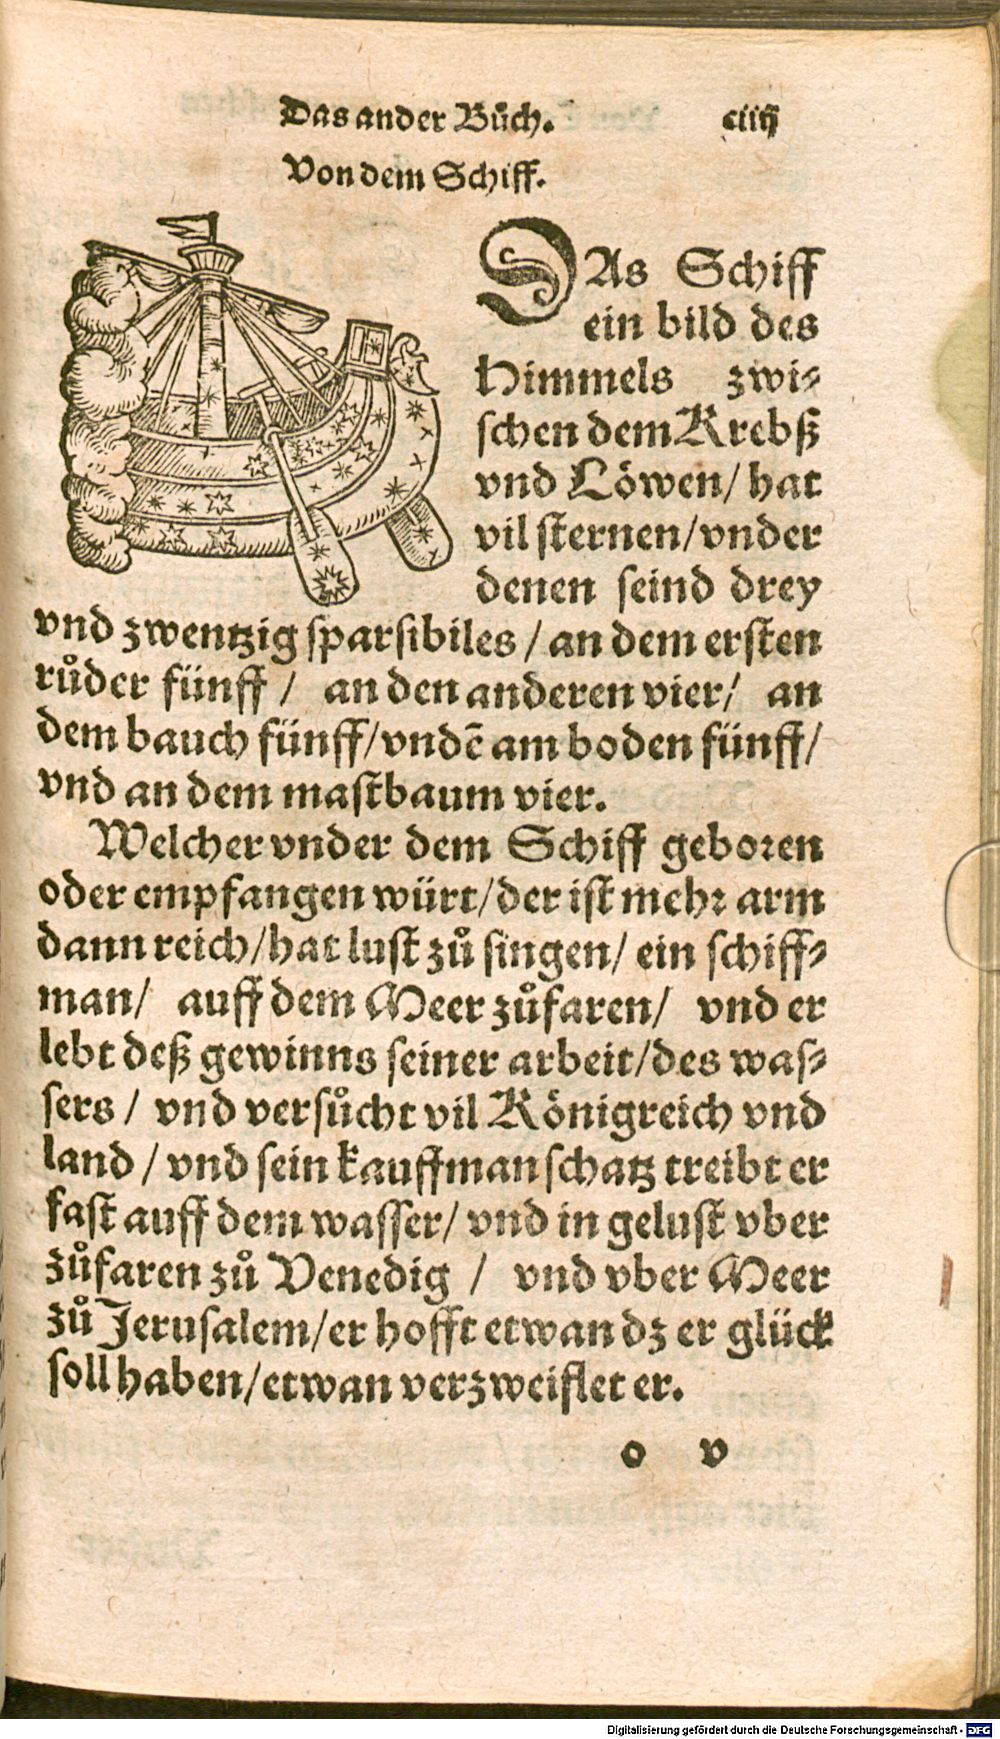 Das ander Bůch. ciiij
Von dem Schiff.
DAs Schiff
ein bild des
Himmels zwi-
schen dem Krebß
vnd Löwen/ hat
vil sternen/vnder
denen seind drey
vnd zwentzig sparsibiles / an dem ersten
růder fünff / an den anderen vier/ an
dem bauch fünff/vndē am boden fünff/
vnd an dem mastbaum vier.
Welcher vnder dem Schiff geboren
oder empfangen würt/der ist mehr arm
dann reich/hat lust zů singen/ ein schiff-
man/ auff dem Meer zůfaren/ vnd er
lebt deß gewinns seiner arbeit/des was-
sers / vnd versůcht vil Königreich vnd
land / vnd sein kauffmanschatz treibt er
fast auff dem wasser/ vnd in gelust vber
zůfaren zů Venedig / vnd vber Meer
zů Jerusalem/er hofft etwan dz er glück
soll haben/etwan verzweiflet er.
o v
Digitalisierung gefördert durch die Deutsche Forschungsgemeinschaft - DFG